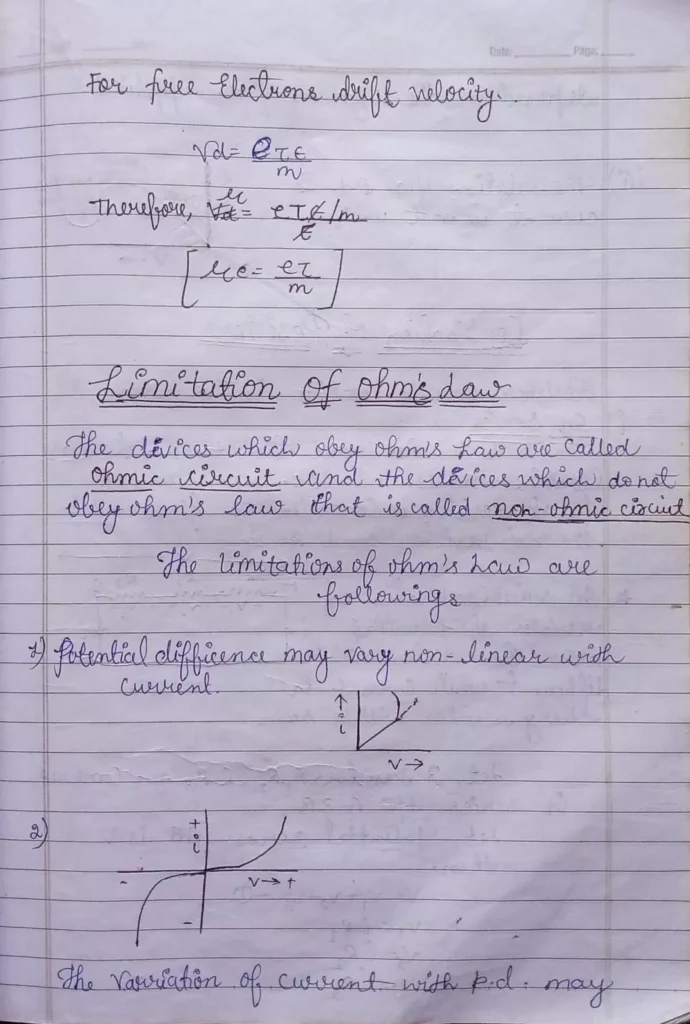 Date: Page:
For free Electrons drift velocity.
Vd = eτE
m
Therefore, Vd μ = eτE/m
E
[ μe = eτ ]
m
Limitation of ohm's Law
The devices which obey ohm's Law are called
ohmic circuit and the devices which do not
obey ohm's law that is called non-ohmic circuit
The limitations of ohm's Law are
followings
1) Potential difficence may vary non-linear with
current.
↑ i
V →
2)
+ i
- V → +
-
The variation of current with p.d. may